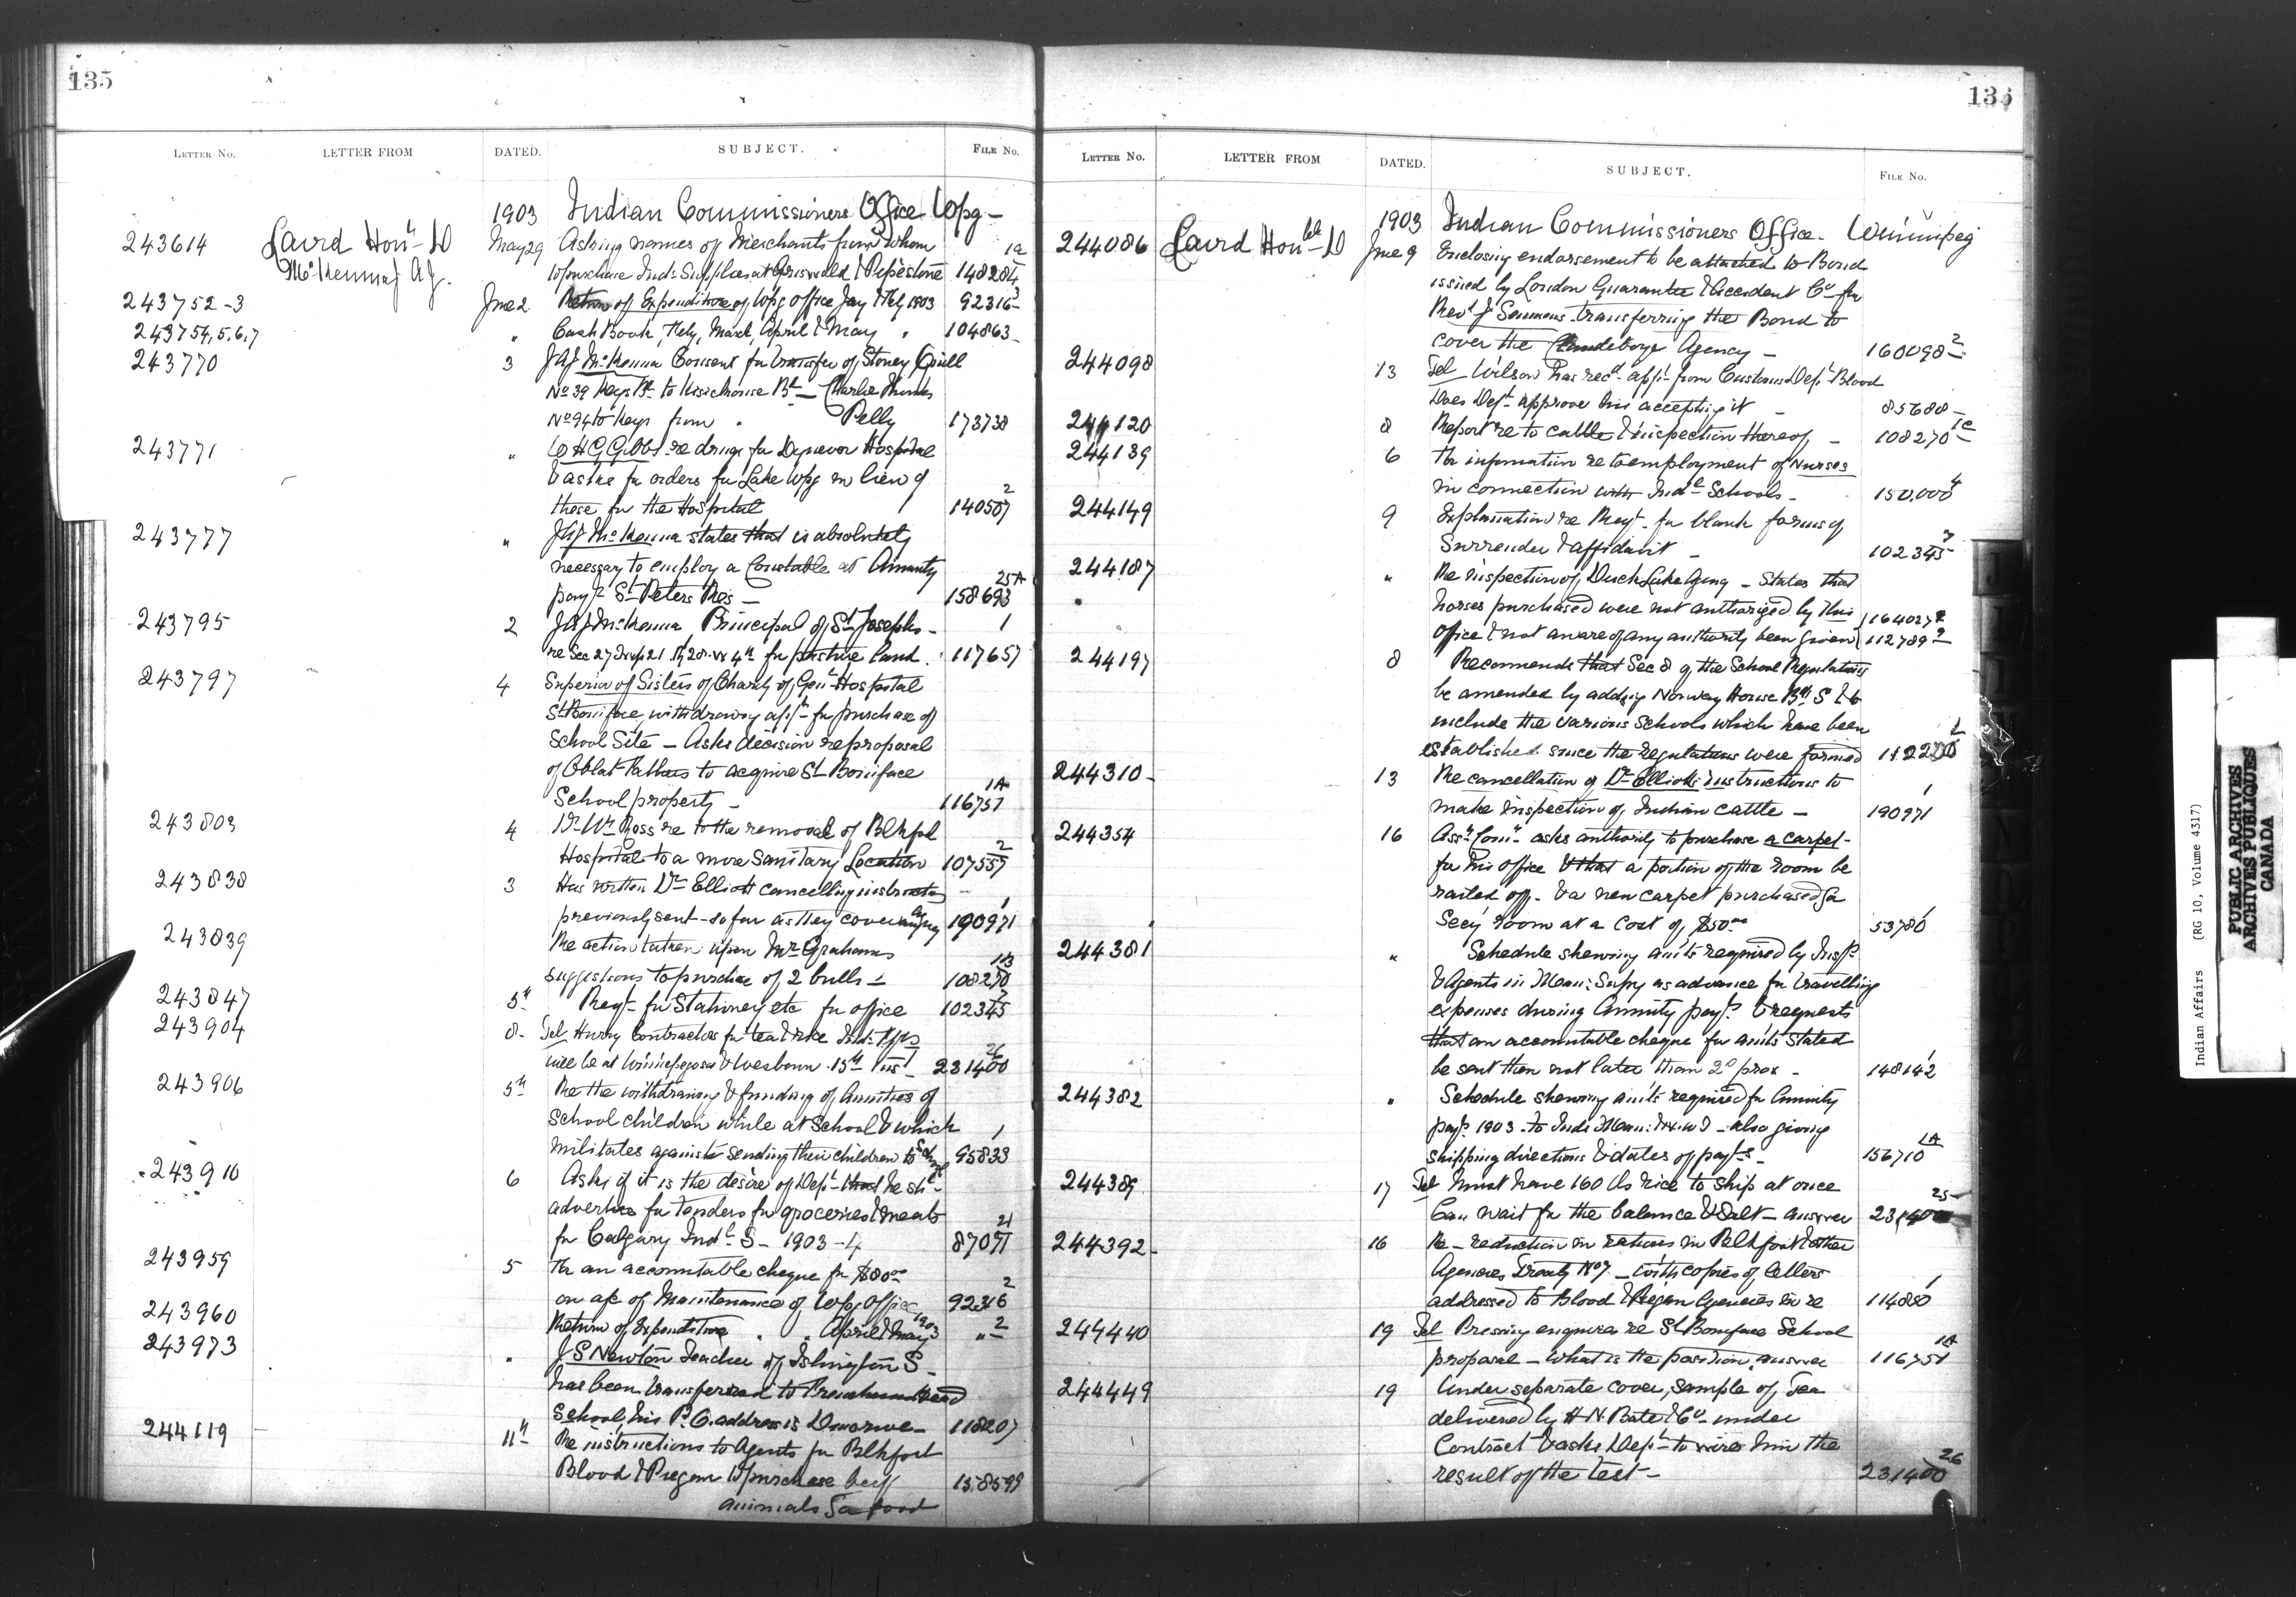 135
LETTER No. LETTER FROM DATED. SUBJECT. FILE No.
1903 Indian Commissioners Office Wpg -
243614 Laird Honl D May 29 Asking names of Merchants from whom 12
McKenna J A J. to purchase Inds Supplies at Griswold & Pipestone 148284
243752-3 June 2 Return of Expenditure of Wpg office Jany & Feby 1903 92316 3
243754,5,6,7 " Cash Book, Feby, March, April & May " 104863
243770 3 JAJ McKenna Consent for transfer of Stoney Quill
No 39 Keys Bd to Kisickonse Bd - Charlie
No 94 to Keys from " Pelly 173738
243771 " re drugs for Dynevor Hospital
& asks for orders for Lake Wpg in lieu of
those for the Hospital 140507 2
243777 " JAJ McKenna states that is absolutely
necessary to employ a Constable at Annuity 25A
payt St Peters Res - 158693
243795 2 JAJ McKenna Principal of St Josephs - 1
re Sec 27 Twp 21 Rg 28 W 4th for pasture land. 117657
243797 4 Superior of Sisters of Charity of Genl Hospital
St Boniface, withdrawing appn for purchase of
School Site - Asks decision re proposal
of Oblat Fathers to acquire St Boniface 1A
School property - 116751
243803 4 Dr Wm Ross re to the removal of Blkfoot 2
Hospital to a more Sanitary Location 107557
243838 3 Has written Dr Elliott cancelling instructs 1
previously sent - so far as they cover 190971
243839 Re action taken upon Mr Grahams 1B
suggestions to purchase of 2 bulls - 108270
243847 5th Reqt for Stationery etc for office 102345 7
243904 8 - Tel Hurry Contractors for tea & rice Inds 26
will be at Winnipegosis & Westbourn 15th inst 231400
243906 5th Re the withdrawing & funding of Annuities of
School children while at School & which 1
militates against sending their children to School 95833
243910 6 Asks if it is the desire of Dept that he shd
advertise for Tenders for groceries & meats 21
for Calgary Indl S - 1903-4 87071
243959 5 For an accountable cheque for $80.00 2
on a/c of Maintenance of Wpg Office 92316
243960 Return of Expenditure " " April & May 1903 " 2
243973 " J S Newton Teacher of Islington S -
has been transferred to Frenchman Head
School, his P.O. address is Dinorwic - 118207
244119 11th Re instructions to Agents for Blkfoot
Blood & Piegan to purchase beef 158599
animals for food
135
LETTER No. LETTER FROM DATED. SUBJECT. FILE No.
1903 Indian Commissioners Office. Winnipeg
244086 Laird Honble D June 9 Enclosing endorsement to be attached to Bond
issued by London Guarantee & Accident Co for
Revd J Semmens transferring the Bond to
cover the Clandeboye Agency - 160098 2
244098 13 Tel Wilson has recd appt from Customs Dept Blood
Does Dept approve his accepting it - 85688 -
244120 8 Report re to cattle & inspection thereof - 108270 1C
244139 6 For information re to employment of Nurses
in connection with Indl Schools - 150,000 4
244149 9 Explanation re Reqt for blank forms of
Surrender & affidavit - 102345 7
244187 " Re inspection of Duck Lake Agency - States that
horses purchased were not authorized by this 164027 2
Office & not aware of any authority been given 112789 2
244197 8 Recommends that Sec 8 of the School Regulations
be amended by adding Norway House Bdg S & to
include the various Schools which have been
established since the regulations were formed
244310 - 13 Re cancellation of Dr Elliotts instructions to 1
make inspection of Indian Cattle - 190971
244354 16 Asst Comr asks authority to purchase a carpet
for his office & that a portion of the room be
railed off. & a new carpet purchased for
Secy room at a cost of $50.00 53780 1
244381 " Schedule shewing amts required by Insps
& Agents in Man: Supy as advance for travelling
expenses during Annuity payts & requests
that an accountable cheque for amts stated
be sent them not later than 2d prox - 148142 1
244382 " Schedule shewing amts required for Annuity
payts 1903 - to Inds Man: & N.W.T - also giving
shipping directions & dates of payts - 156710 1A
244389 17 Tel Must have 160 lbs rice to ship at once 25
Can wait for the balance & Salt - answer 231400
244392 - 16 Re - reduction in rations in Blkfoot & other
Agencies Treaty No 7 - with copies of letters
addressed to Blood & Piegan Agencies in re 114080 1
244440 19 Tel Pressing enquiries re St Boniface School 1A
proposal - What is the position, answer 116751
244449 19 Under separate cover, sample of Tea
delivered by H.N. Bate & Co under
Contract & asks Dept to wire him the
result of the test - 231400 26
Indian Affairs (RG 10, Volume 4317)
PUBLIC ARCHIVES
ARCHIVES PUBLIQUES
CANADA